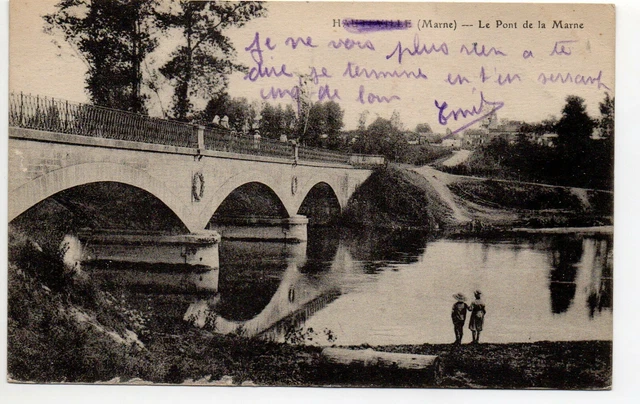 HAUTEVILLE (Marne) — Le Pont de la Marne
Je ne vois plus rien a te
dire je termine en t'en serrant
cinq de loin
Emile